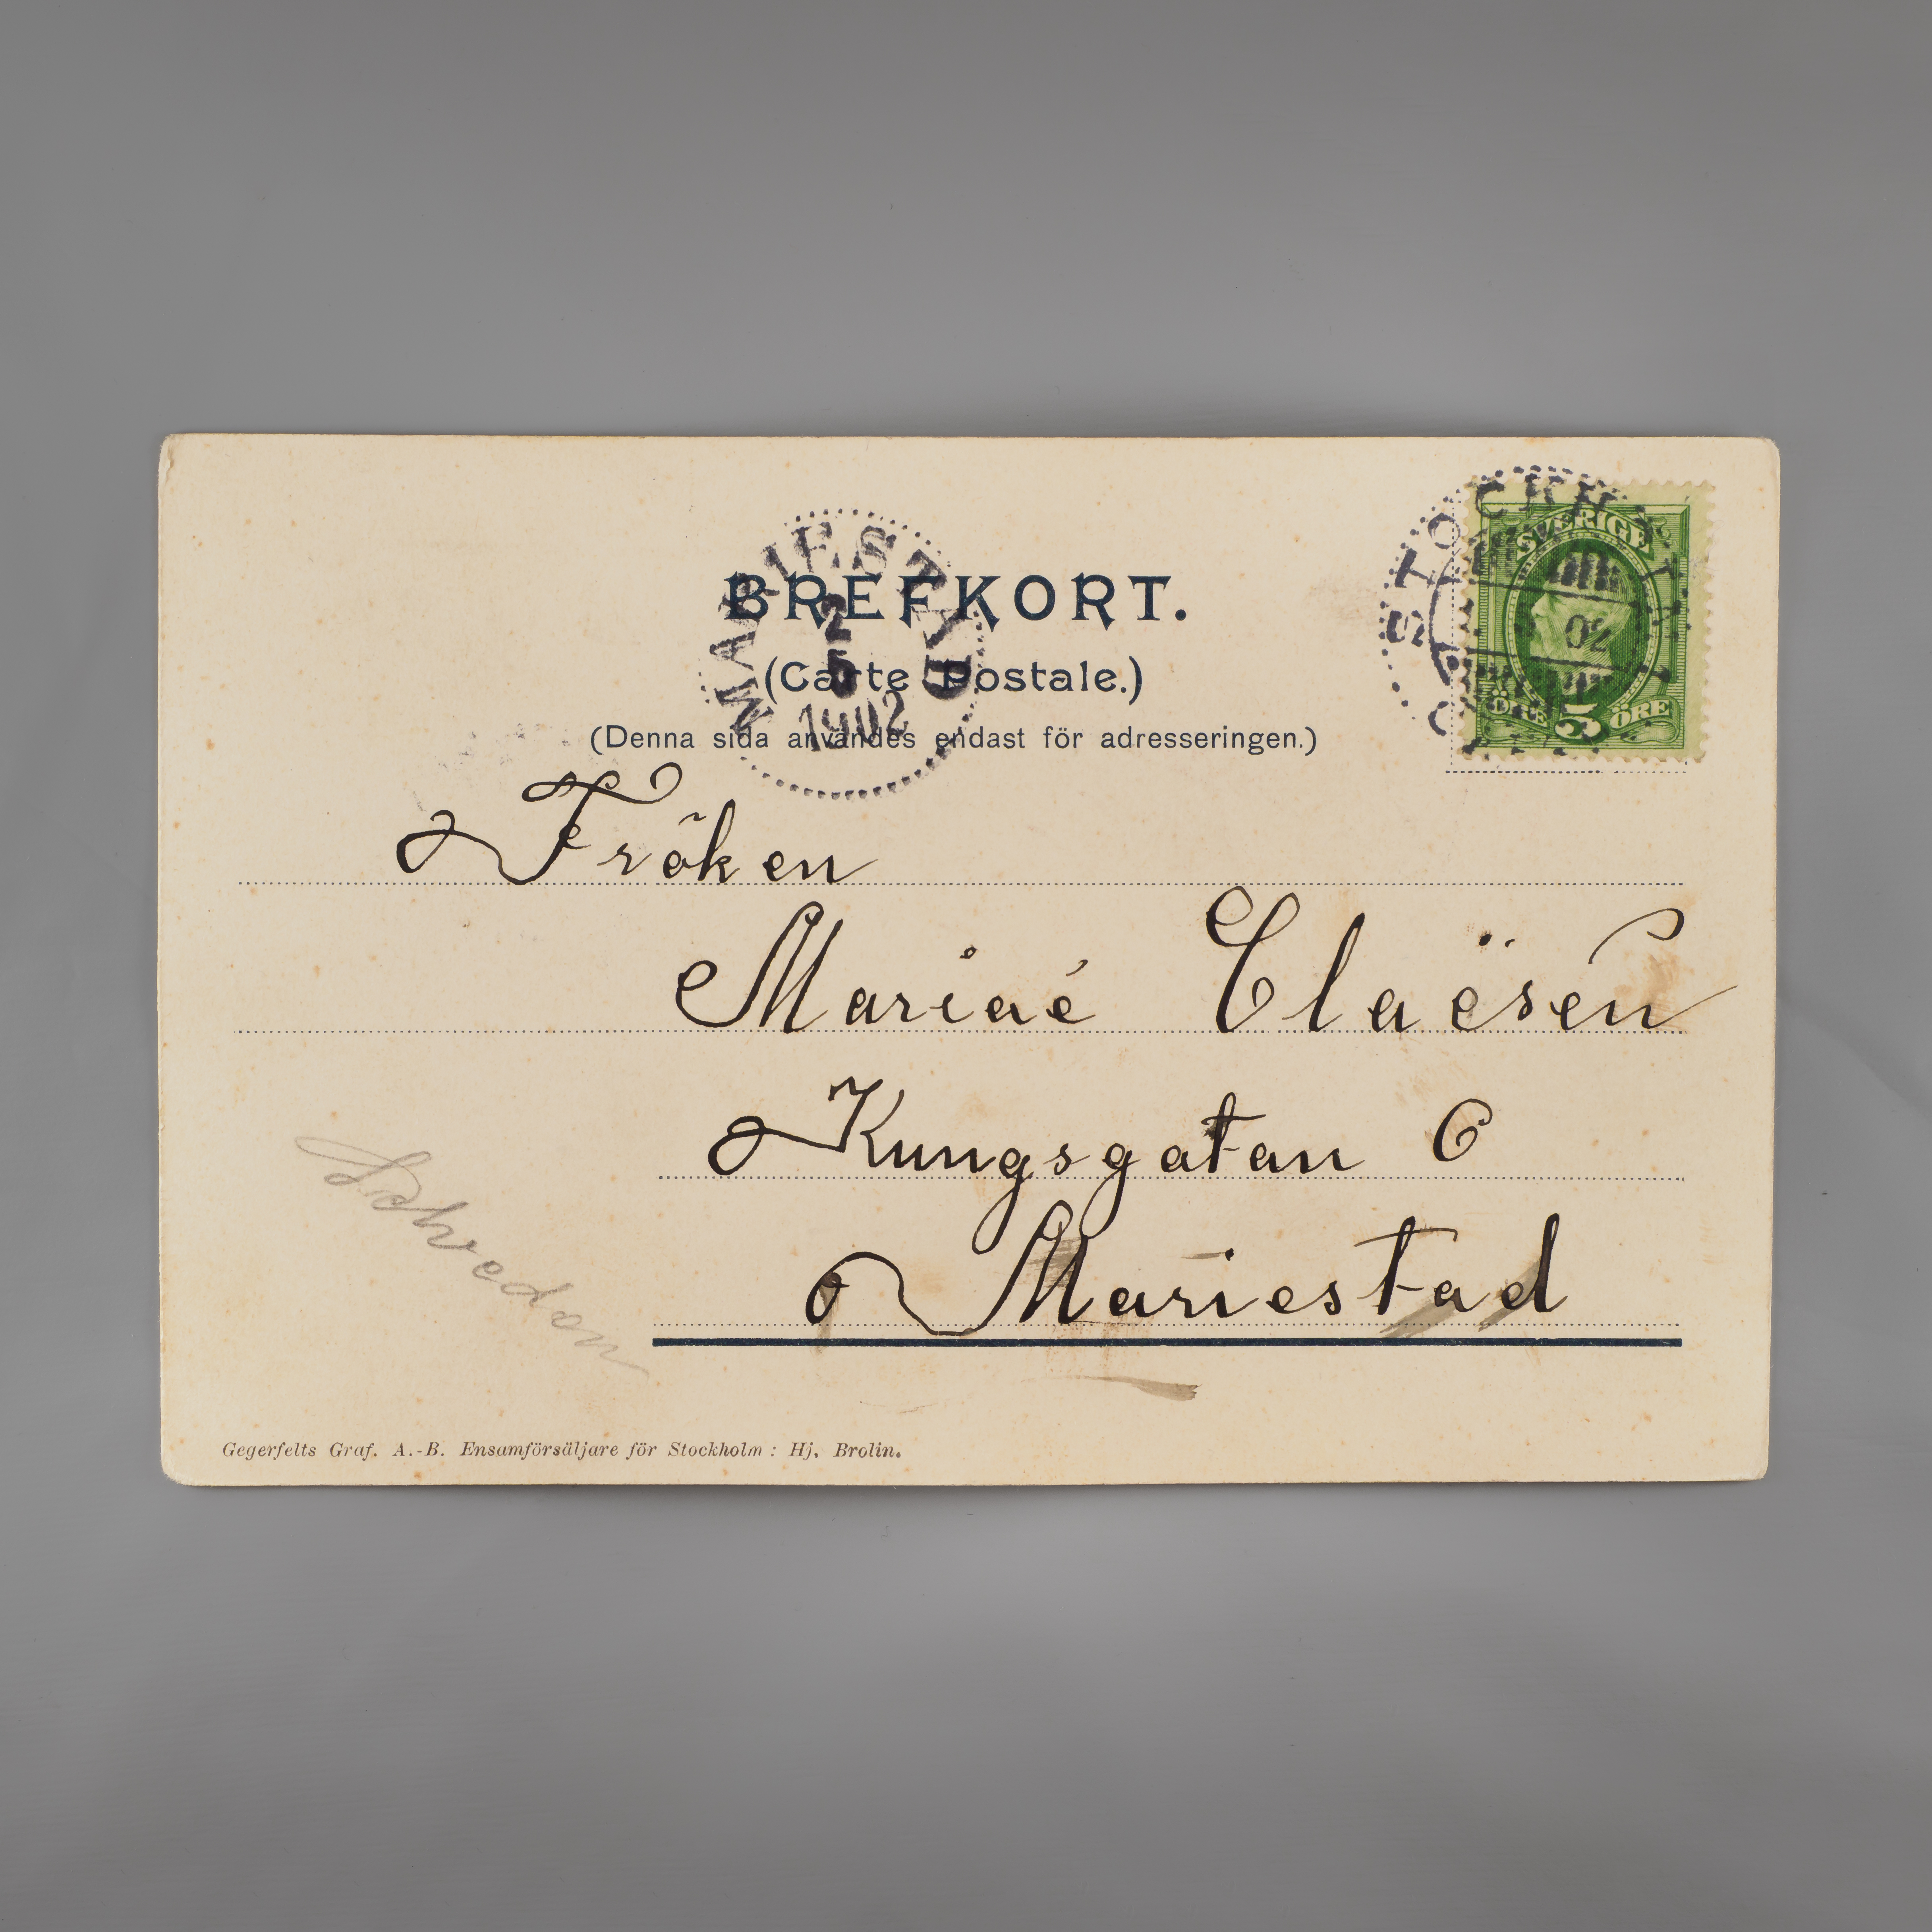 BREFKORT.
(Carte Postale.)
(Denna sida användes endast för adresseringen.)
MARIESTAD
2
5
1902
STOCKH
02
SVERIGE
ÖRE 5 ÖRE
Fröken
Mariaé Claësen
Kungsgatan 6
Mariestad
Schweden
Gegerfelts Graf. A.-B. Ensamförsäljare för Stockholm: Hj. Brolin.